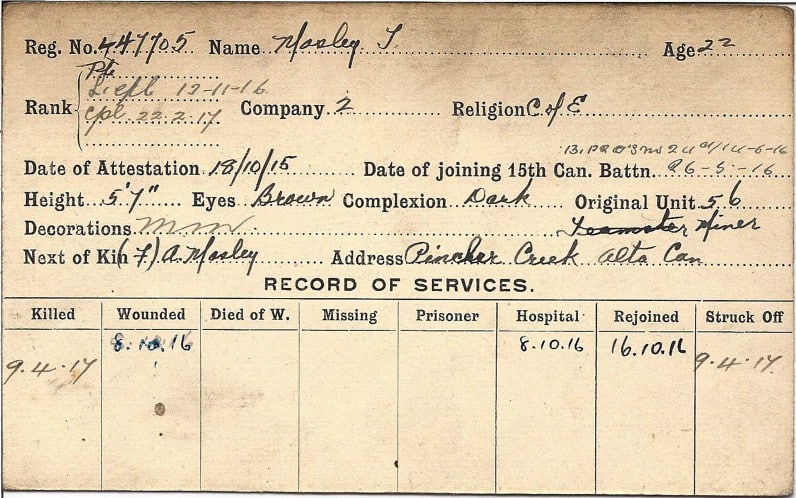 Reg. No. 447705 Name Mosley T. Age 22
Pte
L.cpl 12-11-16
Rank cpl 22.2.17 Company 2 Religion C of E
Date of Attestation 18/10/15 Date of joining 15th Can. Battn. 26-5-16
Height 5'7" Eyes Brown Complexion Dark Original Unit 56
Decorations M M Teamster Miner
Next of Kin (F) A. Mosley Address Pincher Creek Alta Can
RECORD OF SERVICES.
Killed Wounded Died of W. Missing Prisoner Hospital Rejoined Struck Off
8.10.16 8.10.16 16.10.16
9.4.17 9.4.17